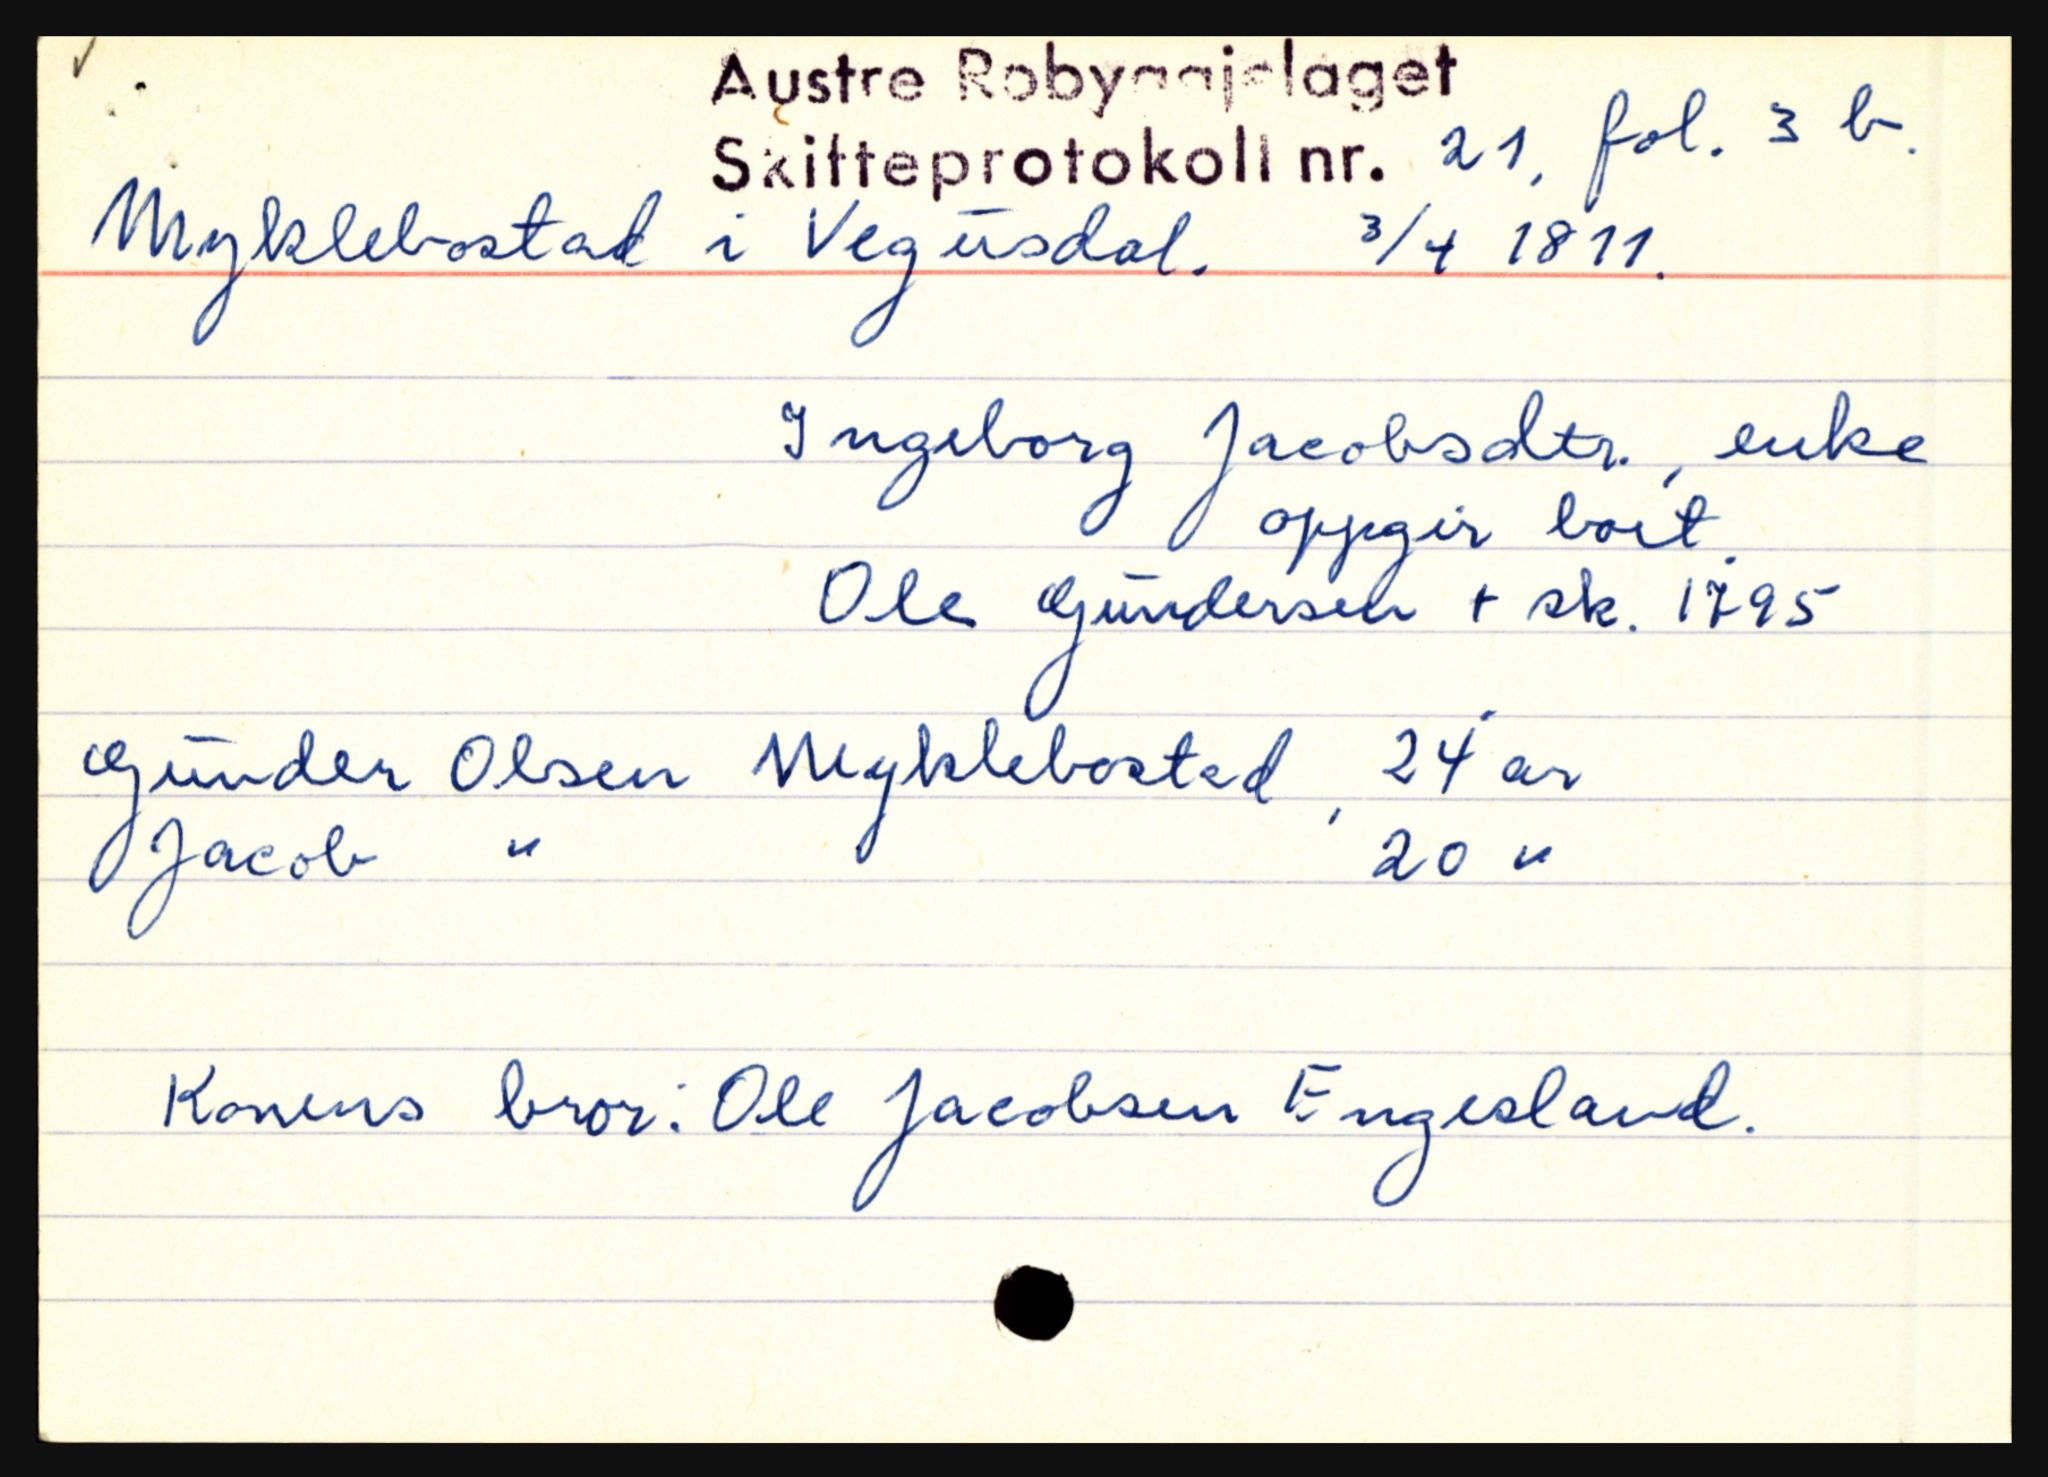 Austre Robyggjelaget
Skifteprotokoll nr. 21, fol. 3 b.
Myklebostad i Vegusdal. 3/4 1811.
Ingeborg Jacobsdtr., enke
oppgir boet.
Ole Gundersen + sk. 1795
Gunder Olsen Myklebostad, 24 år
Jacob " 20 "
Konens bror: Ole Jacobsen Engesland.